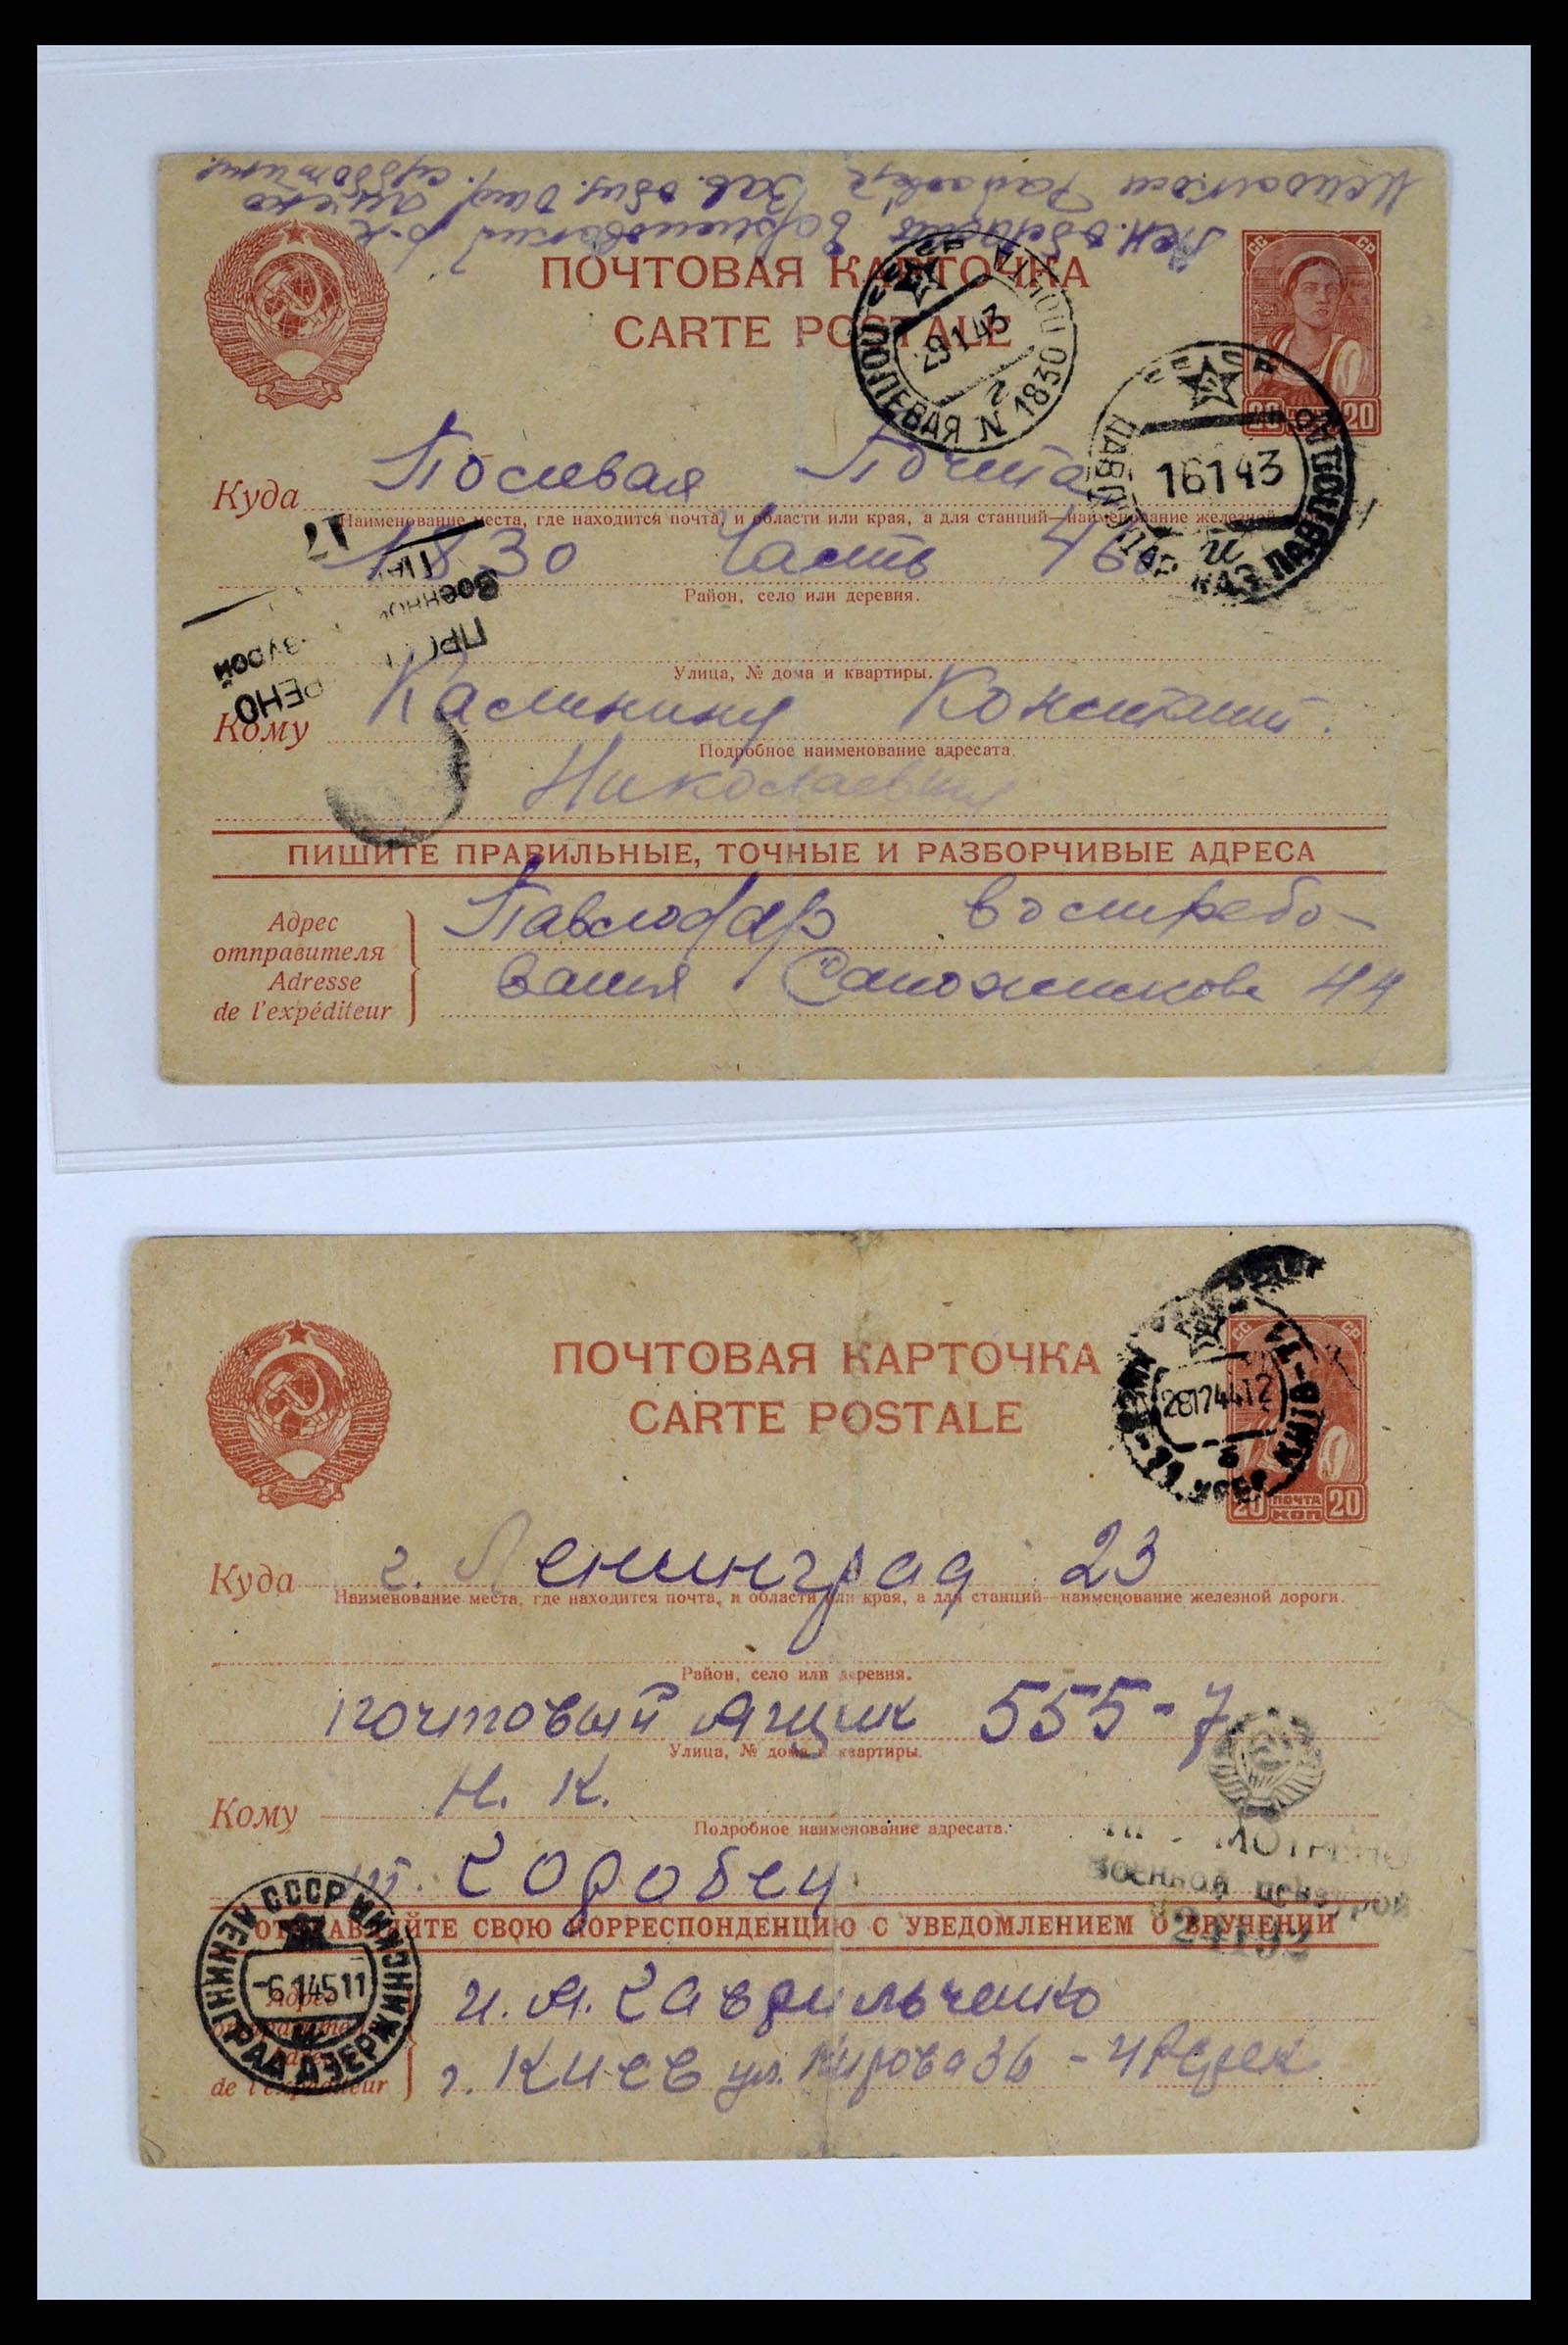 СС СР
ПОЧТОВАЯ КАРТОЧКА
CARTE POSTALE
29 1 43
ПОЛЕВАЯ N 1830
г
20 20
16 1 43
ПАВЛОДАР КАЗ.
Куда Полевая Почта
Наименование места, где находится почта, и области или края, а для станций—наименование
1830 Часть
Район, село или деревня.
Улица, № дома и квартиры.
Кому Калинину Констант.
Подробное наименование адресата.
Николаевичу
ПИШИТЕ ПРАВИЛЬНЫЕ, ТОЧНЫЕ И РАЗБОРЧИВЫЕ АДРЕСА
Адрес
отправителя
Adresse
de l'expéditeur
Павлодар востребо-
вания Сапожникова
СС СР
ПОЧТОВАЯ КАРТОЧКА
CARTE POSTALE
28 12 44 12
20 ПОЧТА КОП 20
Куда г. Ленинград 23
Наименование места, где находится почта, и области или края, а для станций—наименование железной дороги.
Район, село или деревня.
почтовый ящик 555-7
Улица, № дома и квартиры.
Кому Н. К.
Подробное наименование адресата.
Коробец
ВОЕННОЙ ЦЕНЗУРОЙ
ОТПРАВЛЯЙТЕ СВОЮ КОРРЕСПОНДЕНЦИЮ С УВЕДОМЛЕНИЕМ О ВРУЧЕНИИ
СССР
-6 1 45 11
ЛЕНИНГРАД ДЗЕРЖИНСКИЙ
Адрес
de l'expéditeur
И. А. Гаврильченко
г. Киев ул. Кирова 36 -